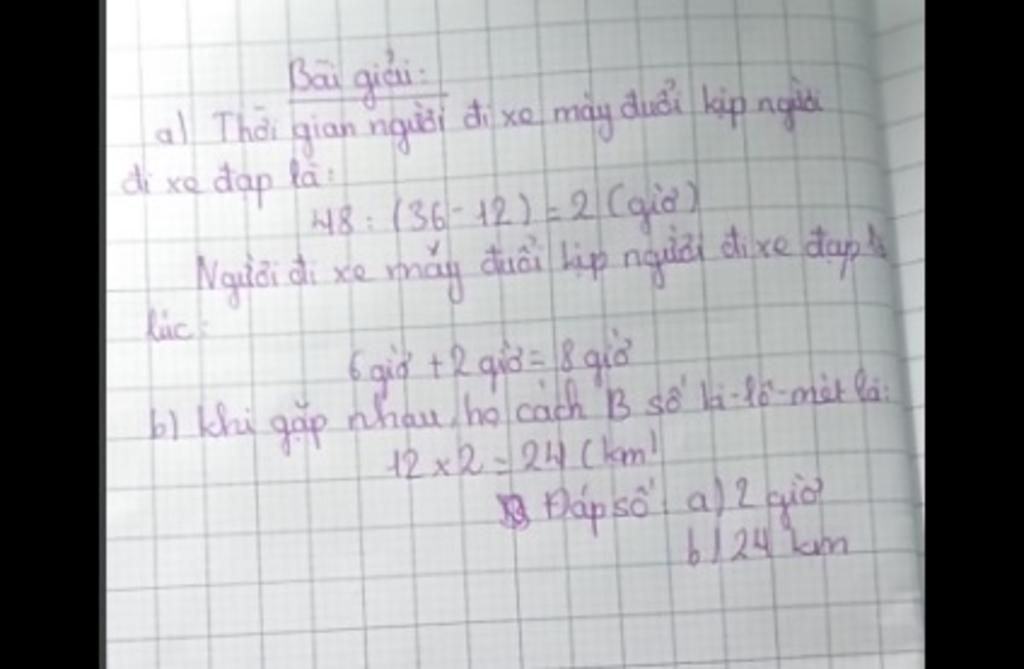 Bài giải:
a) Thời gian người đi xe máy đuổi kịp người
đi xe đạp là:
48 : (36 - 12) = 2 (giờ)
Người đi xe máy đuổi kịp người đi xe đạp
lúc:
6 giờ + 2 giờ = 8 giờ
b) Khi gặp nhau, họ cách B số ki-lô-mét là:
12 x 2 = 24 (km)
Đáp số: a) 2 giờ
b) 24 km